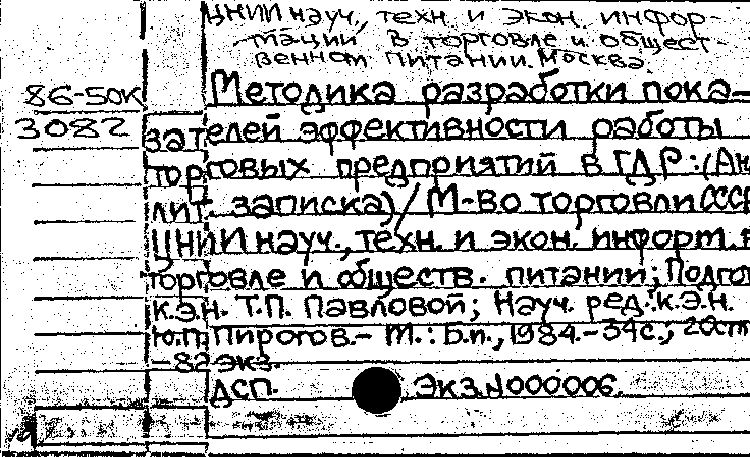 ЦНИИ науч., техн. и экон. инфор-
мации в торговле и общест-
венном питании. Москва.
86-50К Методика разработки пока-
3082 зателей эффективности работы
торговых предприятий в ГДР: (Ан
лит. записка) / М-во торговли СССР
ЦНИИ науч., техн. и экон. информ. в
торговле и обществ. питании; Подгот
к.э.н. Т.П. Павловой; Науч. ред. к.э.н.
Ю.П. Пирогов.- М.: Б.и., 1984.- 34с.; 20см
-82экз.
ДСП. Экз.N000006.